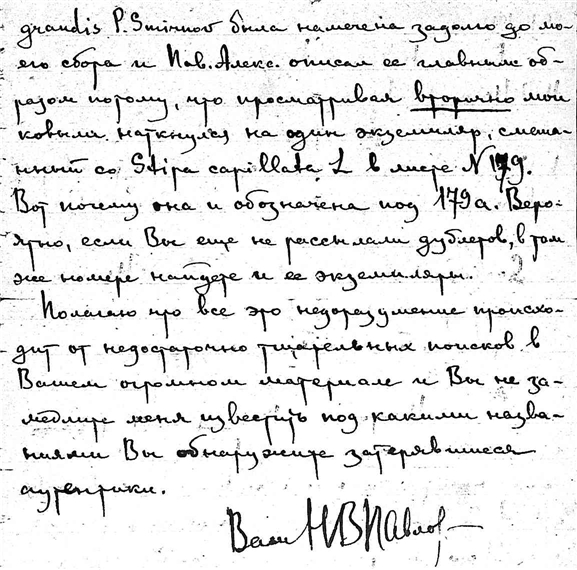 grandis P. Smirnov была намечена задолго до мо-
его сбора и Пав. Алекс. описал ее главным об-
разом потому, что просматривая вторично мои
ковыли наткнулся на один экземпляр, смеша-
нный со Stipa capillata L в листе N 179.
Вот почему она и обозначена под 179а. Веро-
ятно, если Вы еще не рассылали дублетов, в том
же номере найдете и ее экземпляры.
Полагаю что все это недоразумение происхо-
дит от недостаточно тщательных поисков в
Вашем огромном материале и Вы не за-
медлите меня известить под какими назва-
ниями Вы обнаружите затерявшиеся
аутентики.
Ваш НВПавлов